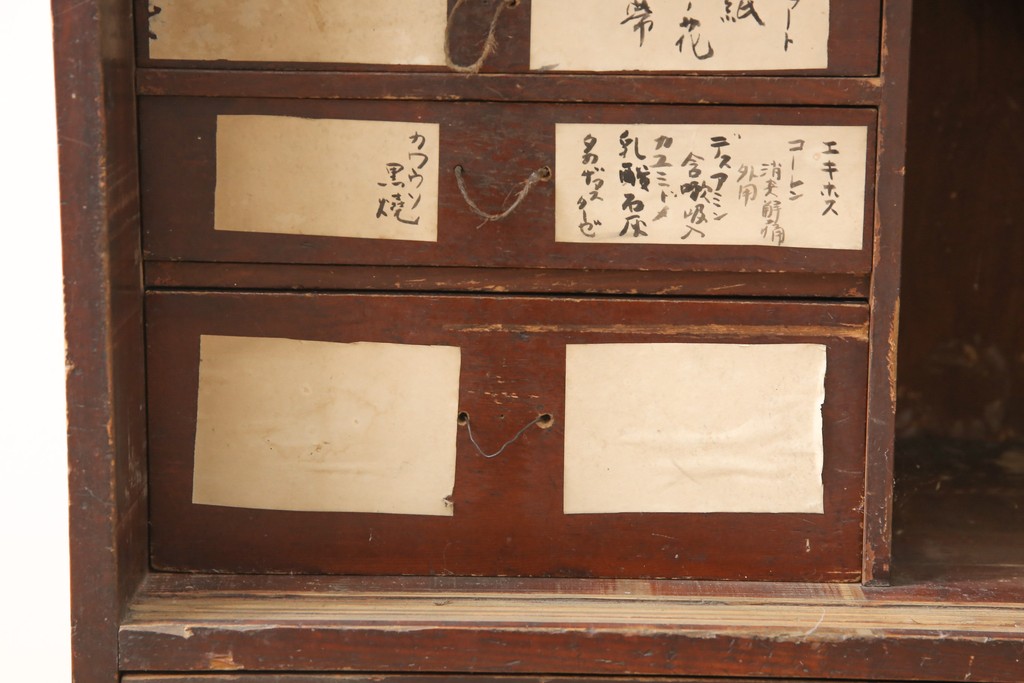 ート
紙
花
帯
エキホス
コーセン
消炎解痛
外用
デスアミン
含嗽吸入
カユミドメ
乳酸石灰
タカヂアスターゼ
カワウソ
黒焼